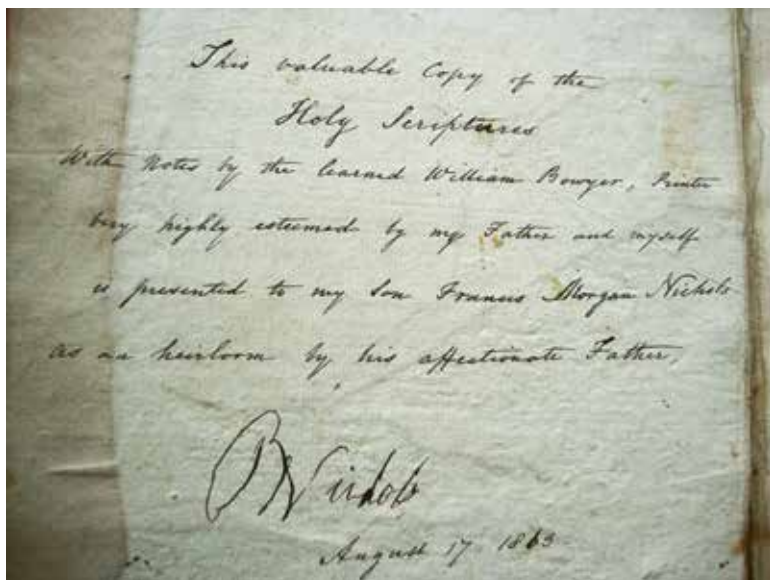 This valuable Copy of the
Holy Scriptures
With Notes by the learned William Bowyer, Printer
very highly esteemed by my Father and myself
is presented to my Son Francis Morgan Nichols
as an heirloom by his affectionate Father,
Nichols
August 17 1863